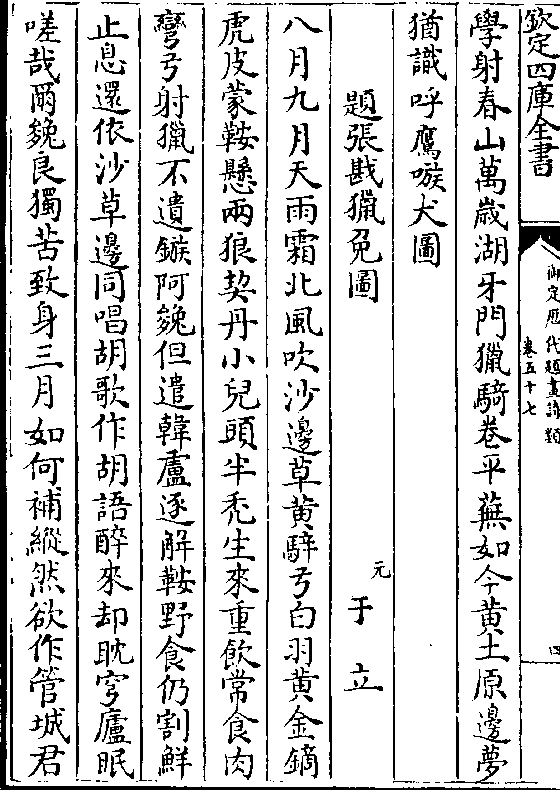 欽定四庫全書
御定歷代題畫詩類
卷五十七
四
學射春山萬歲湖牙門獵騎卷平蕪如今黄土原邊夢
猶識呼鷹嗾犬圖
題張戡獵兔圖
元
于立
八月九月天雨霜北風吹沙邊草黄騂弓白羽黄金鏑
虎皮蒙鞍懸兩狼契丹小兒頭半秃生來重飲常食肉
彎弓射獵不遺鏃阿㕙但遣韓盧逐解鞍野食仍割鮮
止息還依沙草邊同唱胡歌作胡語醉來却耽穹廬眠
嗟哉爾㕙良獨苦致身三月如何補縱然欲作管城君